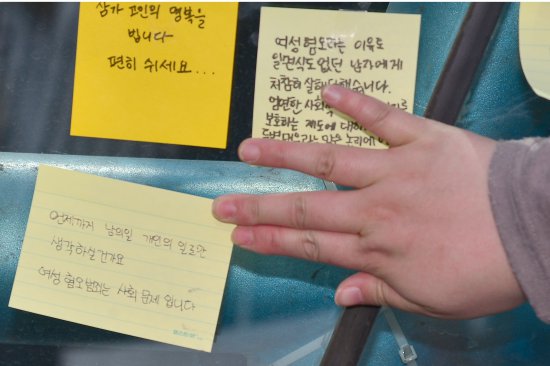 삼가 고인의 명복을
빕니다
편히 쉬세요...
여성혐오라는 이유로
일면식도 없던 남자에게
처참히 살해당했습니다.
엄연한 사회적
보호하는 제도에 대해
논리에
언제까지 남의일 개인의 일로만
생각하실건가요
여성 혐오범죄는 사회 문제 입니다